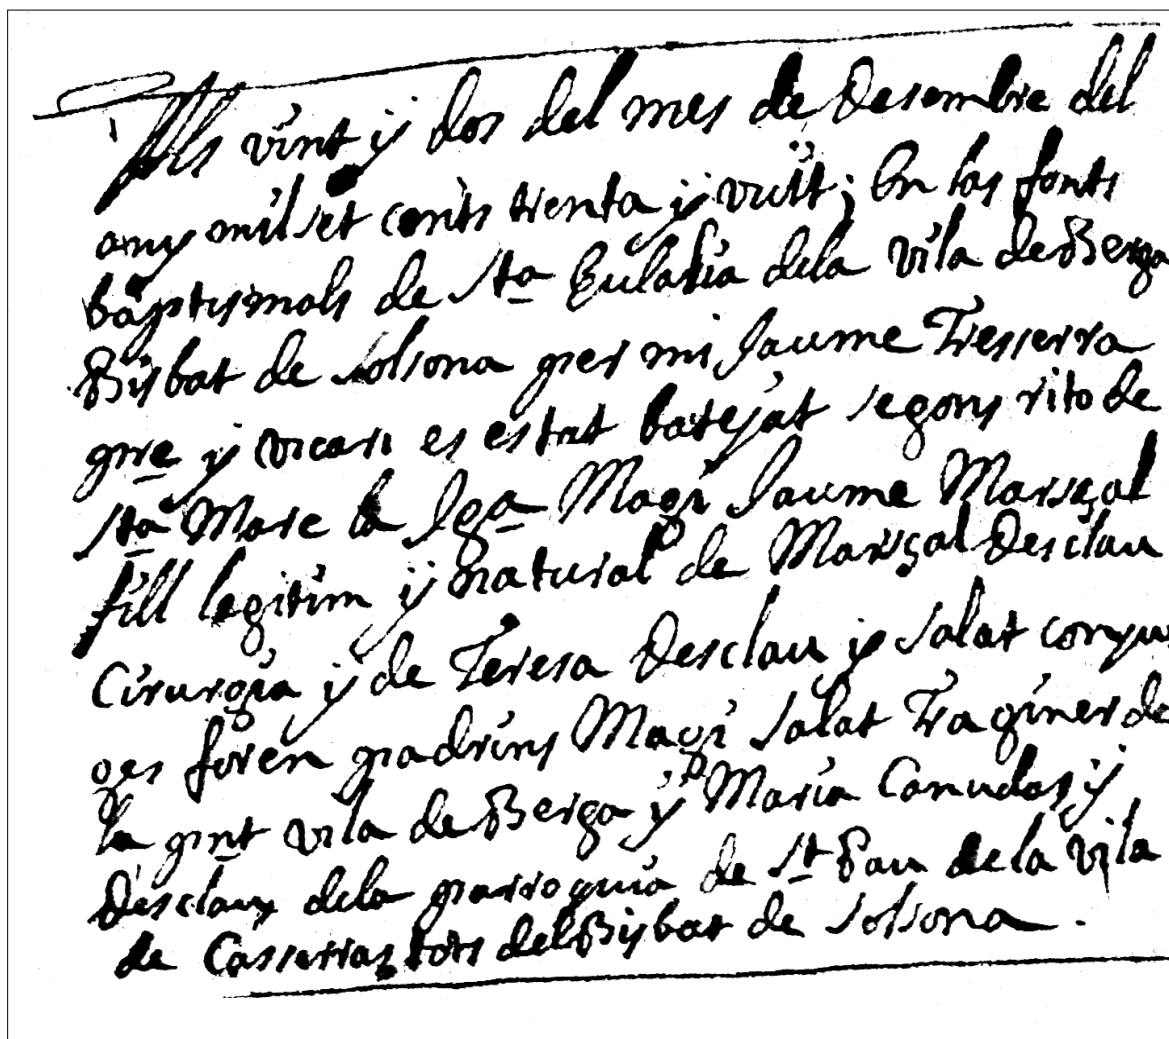 Als vint y dos del mes de Desembre del
any mil set cents trenta y vuit; En las fonts
baptismals de Sta Eularia dela vila de Berga
Bisbat de Solsona per mi Jaume Tresserra
pre y vicari es estat batejat segons rito de
Sta Mare la Iga Magi Jaume Marsçal
fill legitim y natural de Marsçal Desclau
Cirurgia y de Teresa Desclau y Salat conju
ges foren padrins Magi Salat Traginer de
la pnt vila de Berga y Maria Canudas y
Desclaux dela parroquia de St Pau de la vila
de Casserras tots del Bisbat de Solsona.